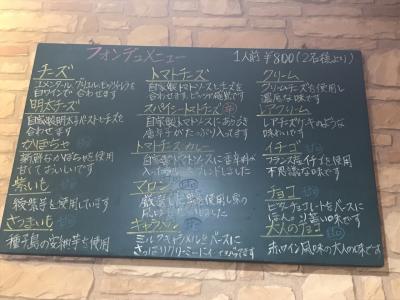 フォンデュメニュー
1人前 ¥800(2名様より)
チーズ
エメンタール、グリエール、モッツァレラを
白ワインで合わせます
明太チーズ
自家製明太子バターストとチーズを
合わせます
かぼちゃ
新鮮なかぼちゃを使用
甘くておいしいです
紫いも
紫いもを使用しています
さつまいも
種子島の安納芋を使用
トマトチーズ
自家製トマトソースとチーズを
合わせます。
スパイシートマトチーズ 辛
自家製トマトソースに
唐辛子がたっぷり入ってます
トマトチーズカレー
自家製トマトソースに香辛料が
ブレンドしました
マロン
厳選した栗を使用し
キャラメル
ミルクキャラメルをベースに
クリーム
クリームチーズを使用し
濃厚な味です
レアクリーム
レアチーズケーキのような
味わいです
イチゴ
フランス産イチゴを使用
不思議な味です
チョコ
ビターチョコレートをベースに
ほんのり苦い味です
大人のチョコ
赤ワイン風味の大人の味です